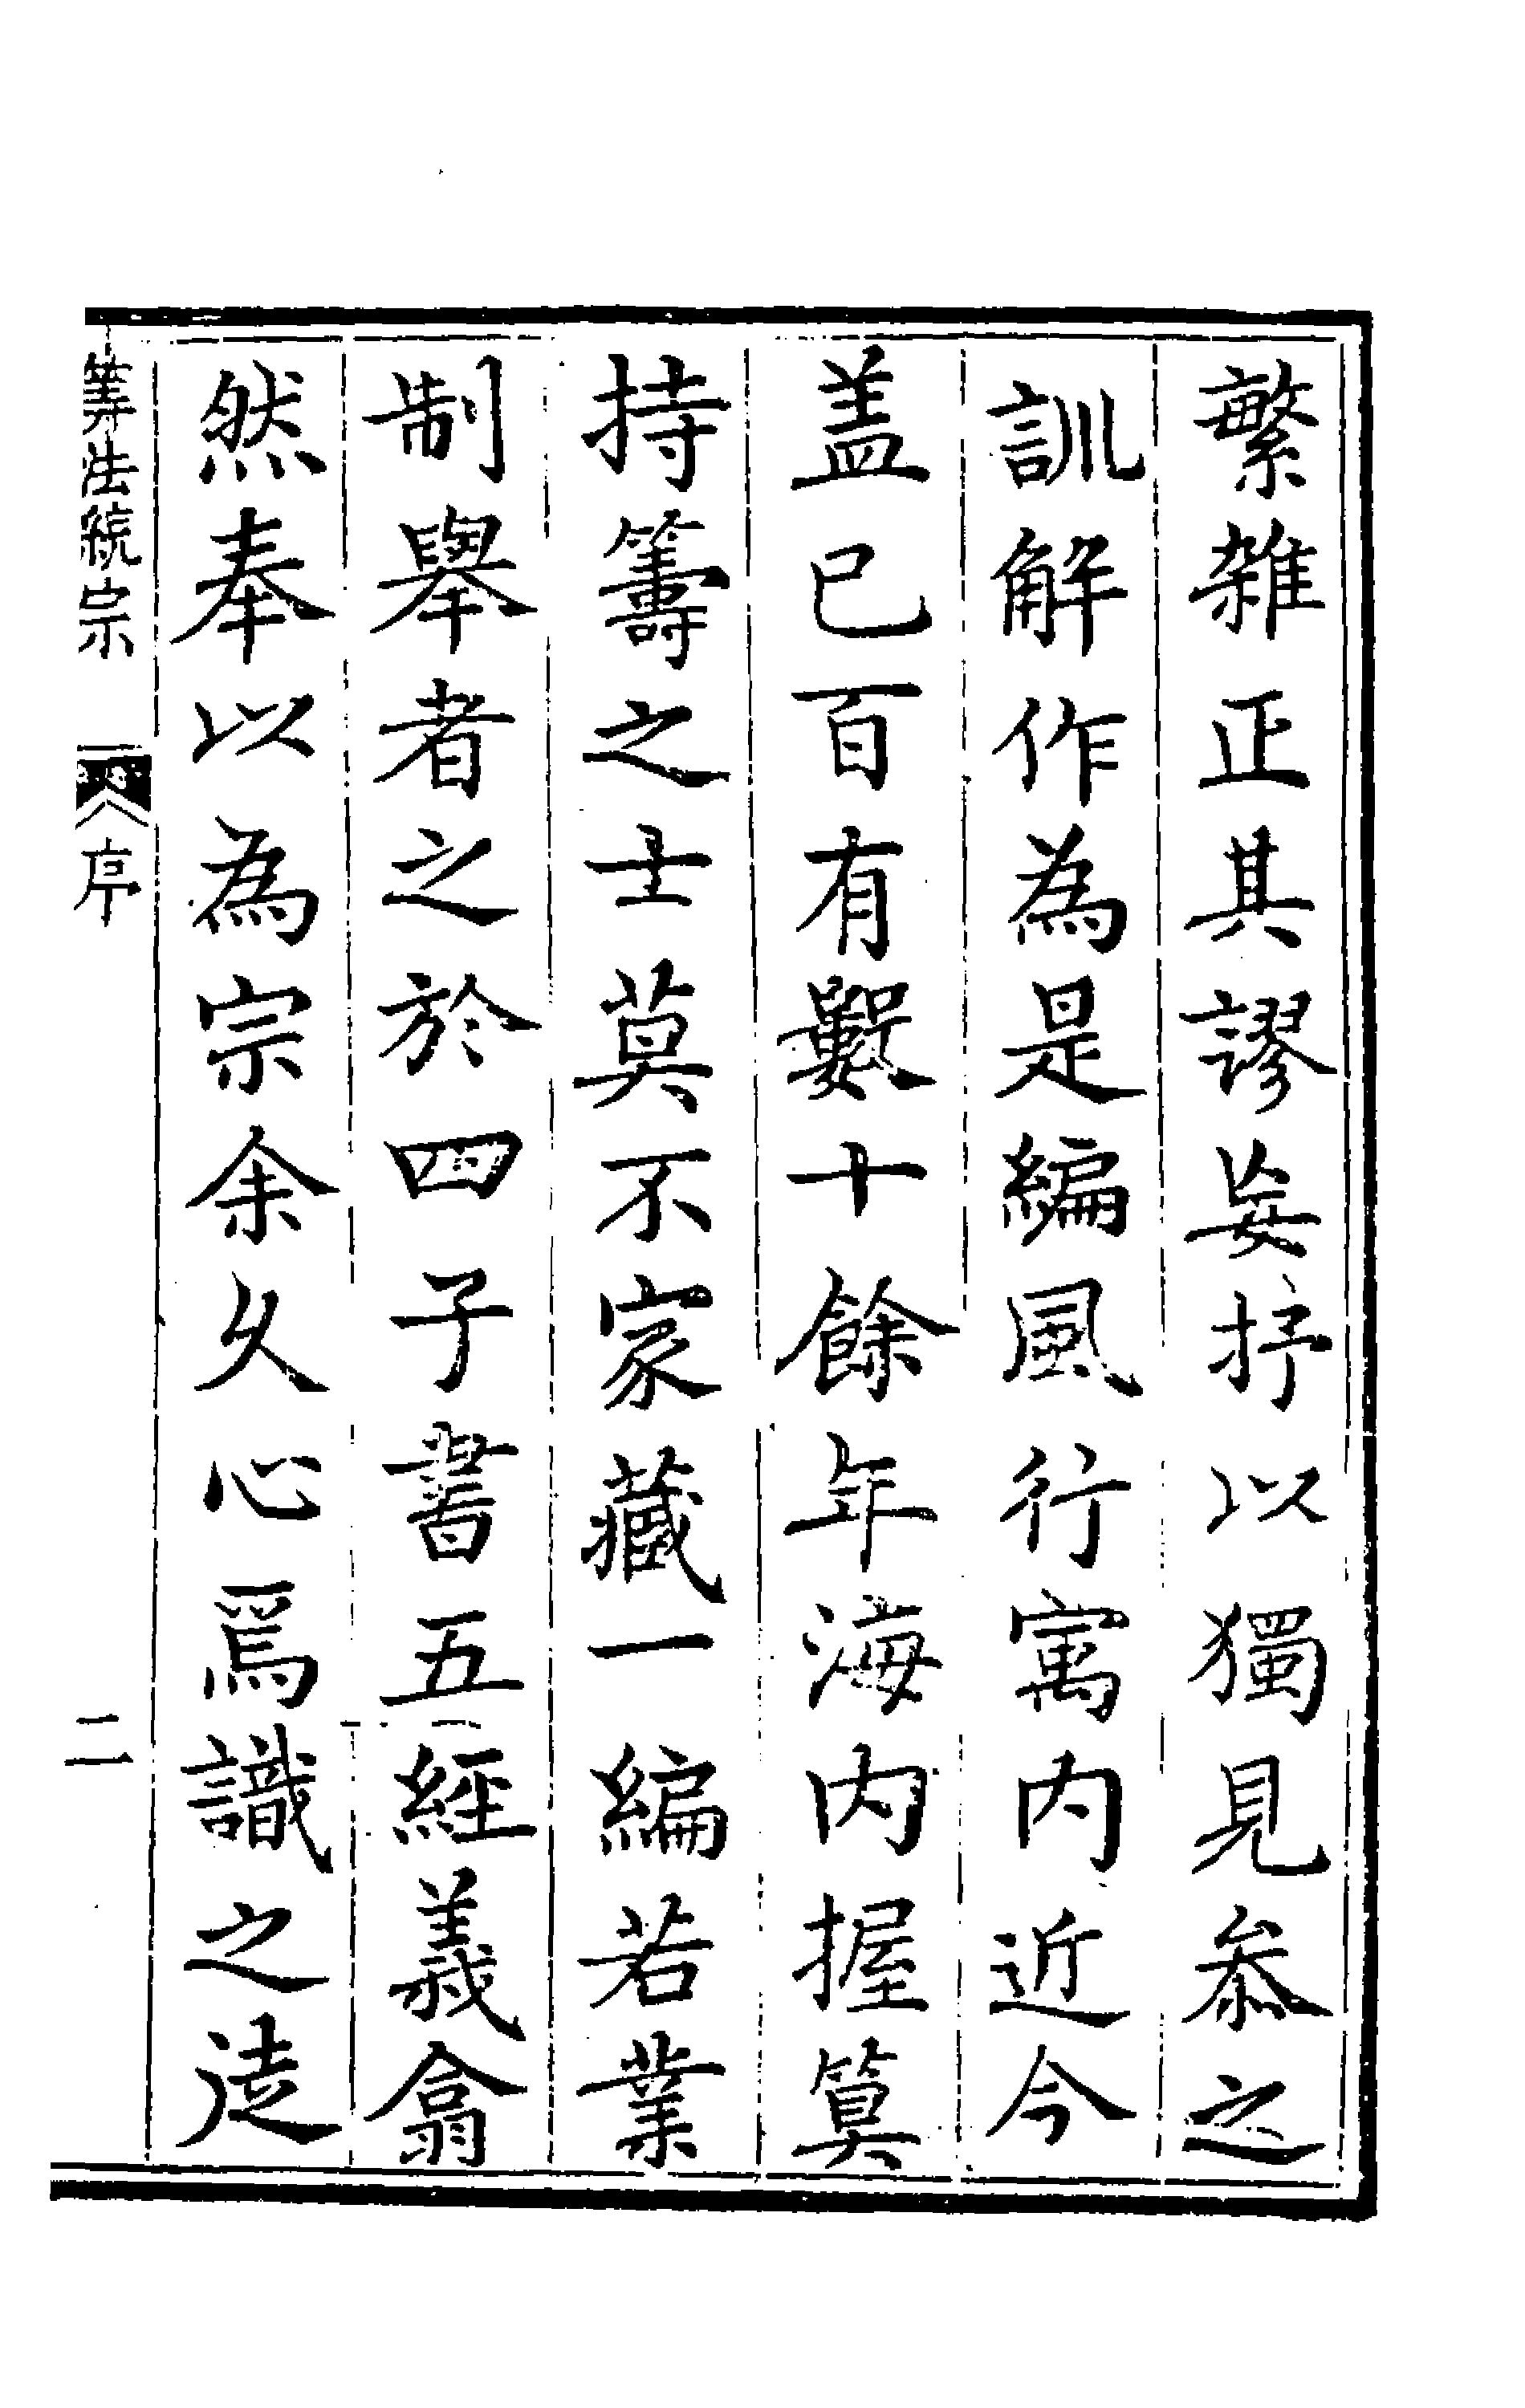 繁雜正其謬妄抒以獨見叅之
訓解作為是編風行寓内近今
盖已百有數十餘年海内握筭
持籌之士莫不家藏一編若業
制舉者之於四子書五經義翕
然奉以為宗余久心焉識之逺
筭法統宗 序 二